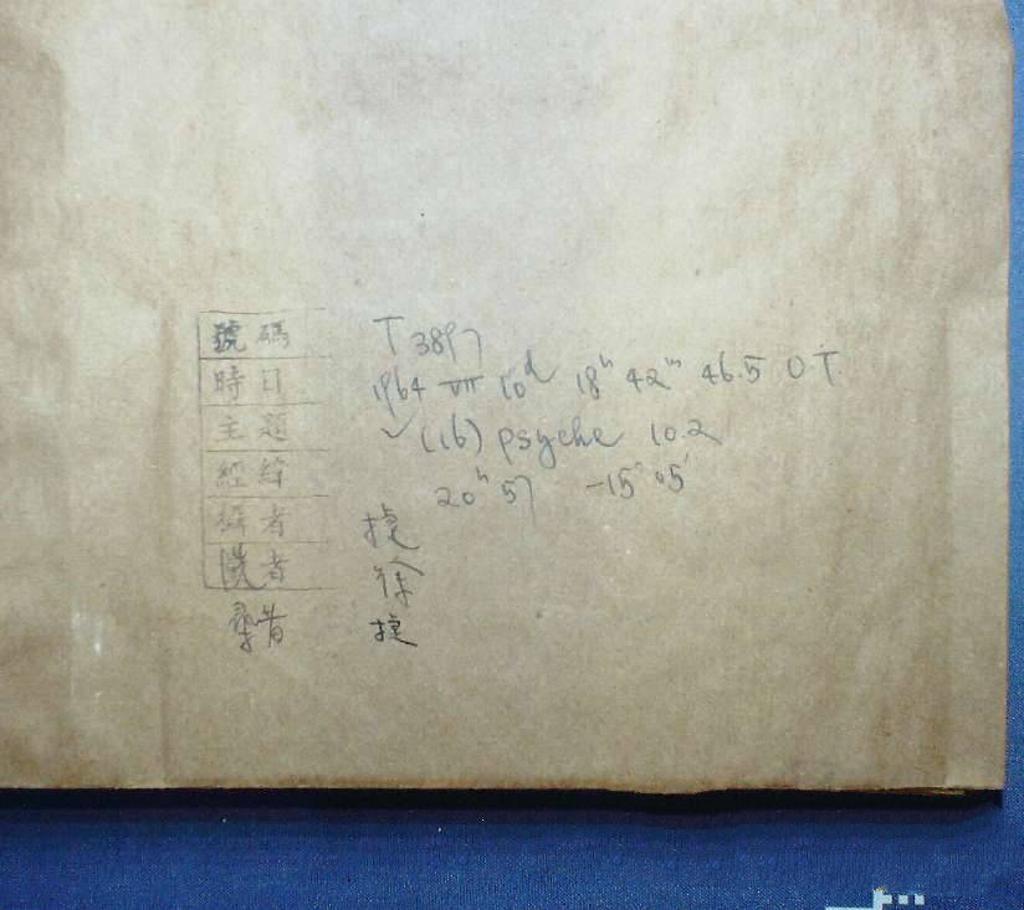 號碼 T 3897
時日 1964 VII 10d 18h 42m 46.5 U.T.
主題 ✓(16) psyche 10.2
經緯 20h 57 -15°05'
攝者 捷
洗者 徐
捷